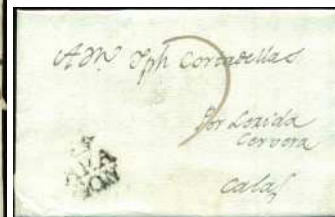 A Dn Jph Cortadellas
Por Lerida
Cervera
Calaf